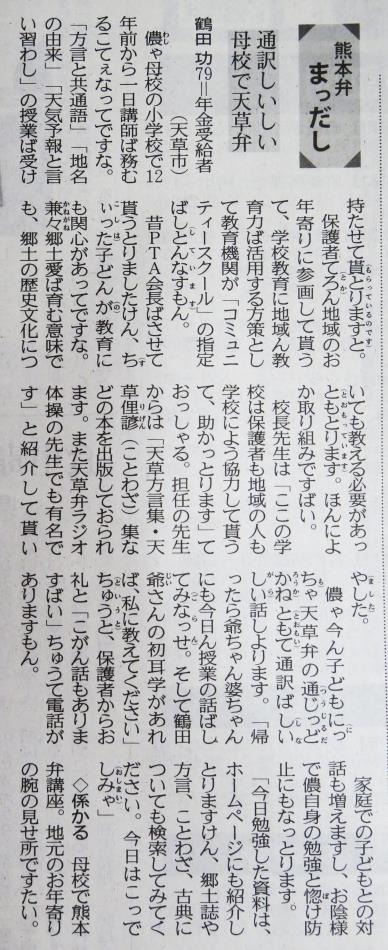 熊本弁
まっだし
通訳しいしい
母校で天草弁
鶴田 功79＝年金受給者
（天草市）
儂ゃ母校の小学校で12
年前から一日講師ば務む
るこてぇなってですな。
「方言と共通語」「地名
の由来」「天気予報と言
い習わし」の授業ば受け
持たせて貰とりますと。
保護者てろん地域のお
年寄りに参画して貰う
て、学校教育に地域ん教
育力ば活用する方策とし
て教育機関が「コミュニ
ティースクール」の指定
ばしとんなすもん。
昔ＰＴＡ会長ばさせて
貰うとりましたけん、ち
いった子どんが教育に
も関心があってですな。
兼々郷土愛ば育む意味で
も、郷土の歴史文化につ
いても教える必要があっ
ともとります。ほんによ
か取り組みですばい。
校長先生は「ここの学
校は保護者も地域の人も
学校によう協力して貰う
て、助かっとります」て
おっしゃる。担任の先生
からは「天草方言集・天
草俚諺（ことわざ）集な
どの本を出版しておられ
ます。また天草弁ラジオ
体操の先生でも有名で
す」と紹介して貰い
やした。
儂ゃ今ん子どもにっ
ちゃ天草弁の通じっど
かねともて通訳ばしい
しい話しよります。「帰
ったら爺ちゃん婆ちゃん
にも今日ん授業の話ばし
てみなっせ。そして鶴田
爺さんの初耳学があれ
ば、私に教えてください」
ちゅうと、保護者からお
礼と「こがん話もありま
すばい」ちゅうて電話が
ありますもん。
家庭での子どもとの対
話も増えますし、お陰様
で儂自身の勉強と惚け防
止にもなっとります。
「今日勉強した資料は、
ホームページにも紹介し
とりますけん、郷土誌や
方言、ことわざ、古典に
ついても検索してみてく
ださい。今日はこっで
しみゃ」
◇係かる 母校で熊本
弁講座。地元のお年寄り
の腕の見せ所ですたい。